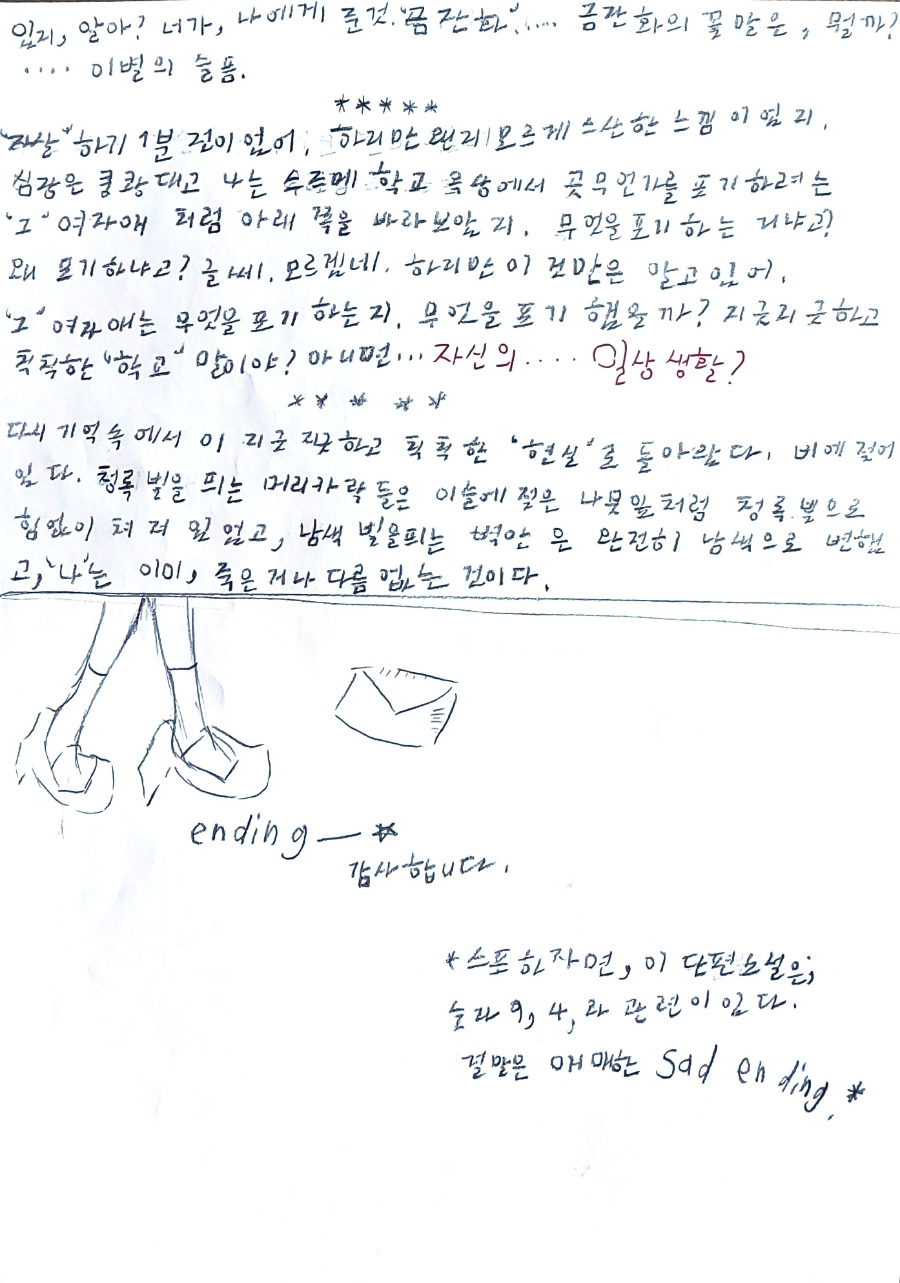 있지, 알아? 너가, 나에게 준것. "금잔화"..... 금잔화의 꽃말은, 뭘까?
.... 이별의 슬픔.
*****
"자살"하기 1분 전이었어. 하지만 왠지 모르게 스산한 느낌이 였지.
심장은 쿵쾅대고 나는 학교 옥상에서 곳 무언가를 포기하려는
'그' 여자애 처럼 아래 쪽을 바라보았지. 무엇을 포기 하는 거냐고?
왜 포기하냐고? 글쎄. 모르겠네. 하지만 이 것만은 알고 있어.
'그' 여자애는 무엇을 포기 하는지. 무엇을 포기 했을까? 지긋지긋하고
칙칙한 "학교" 말이야? 아니면... 자신의.... 일상생활?
*****
다시 기억속에서 이 지긋지긋하고 칙칙한 '현실'로 돌아왔다. 비에 젖어
있다. 청록빛을 띄는 머리카락들은 이슬에 젖은 나뭇잎처럼 청록빛으로
힘없이 쳐져 있었고, 남색 빛을띄는 은 완전히 남색으로 변했
고, '나'는 이미, 죽은 거나 다름 없는 것이다.
ending—*
감사합니다.
*스포하자면, 이 단편소설은,
숫자 9, 4, 와 관련이 있다.
결말은 애매한 sad ending.*